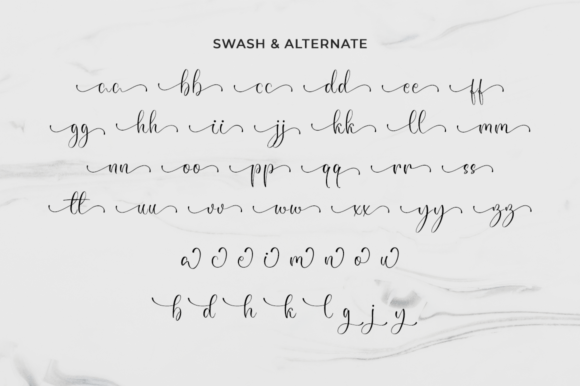 SWASH & ALTERNATE
aa bb cc dd ee ff
gg hh ii jj kk ll mm
nn oo pp qq rr ss
tt uu vv ww xx yy zz
a c e i m n o u
b d h k l g j y